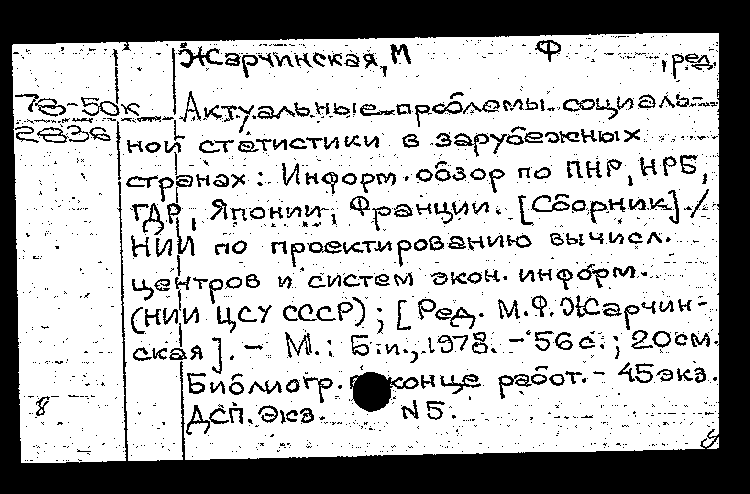 Жарчинская, М Ф , ред.
78-50к Актуальные проблемы социаль-
2836 ной статистики в зарубежных
странах: Информ. обзор по ПНР, НРБ,
ГДР, Японии, Франции. [Сборник]. /
НИИ по проектированию вычисл.
центров и систем экон. информ.
(НИИ ЦСУ СССР); [Ред. М.Ф. Жарчин-
ская]. - М.: Б.и., 1978. - 56 с.; 20 см.
Библиогр. конце работ. - 45 экз.
8 ДСП. Экз. N 5.